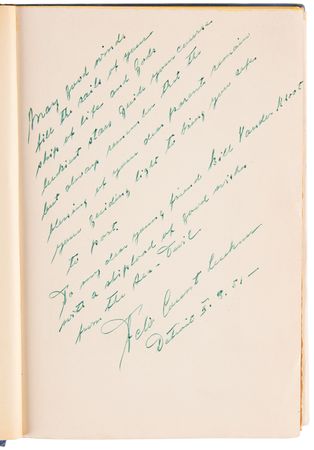 May good winds
fill the sails of your
ship of life and Gods
brightest stars guide your course
but always remember that the
blessing of your dear parents remain
your guiding light to bring you safe
to port.
To my dear young friend Bill Vander Kloot
with a shipload of good wishes
from the Sea-Devil
Felix Count Luckner
Detroit 5. 9. 51. —